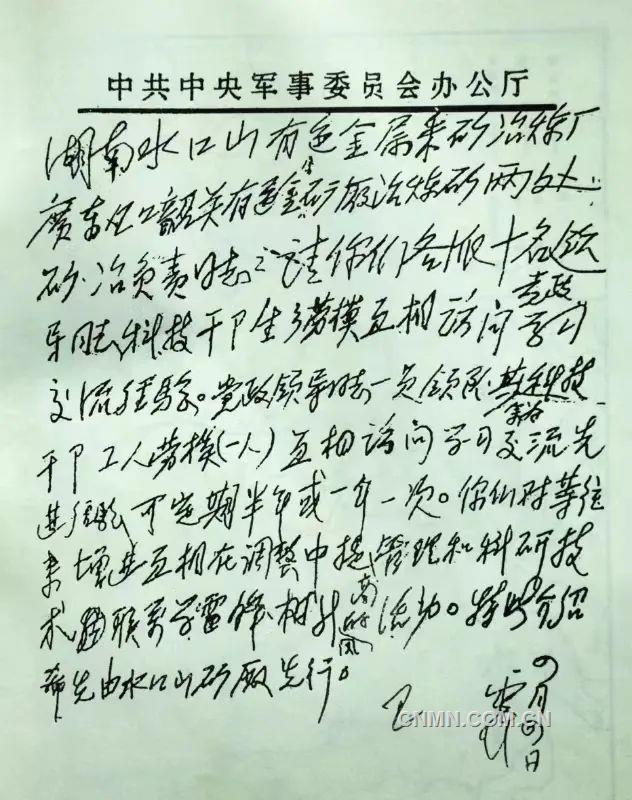 中共中央军事委员会办公厅
湖南水口山有色金属采矿冶炼厂
廣东仁口韶关有色金矿厰冶炼矿两处
矿冶负责同志 请你们各派十名领
导同志科技干卩生劳模互相访问党政学习
交流经验。党政领导同志一员领队 其科技
干卩工人劳模(一人)互相访问学习交流先
进经验可定期半年或一年一次。你们对等往
来增进互相在调整中提高管理和科研技
术 联系学雷锋 树 的风活动。特此介绍
希先由水口山矿厰先行。
王震
四月四日
CNMN.COM.CN